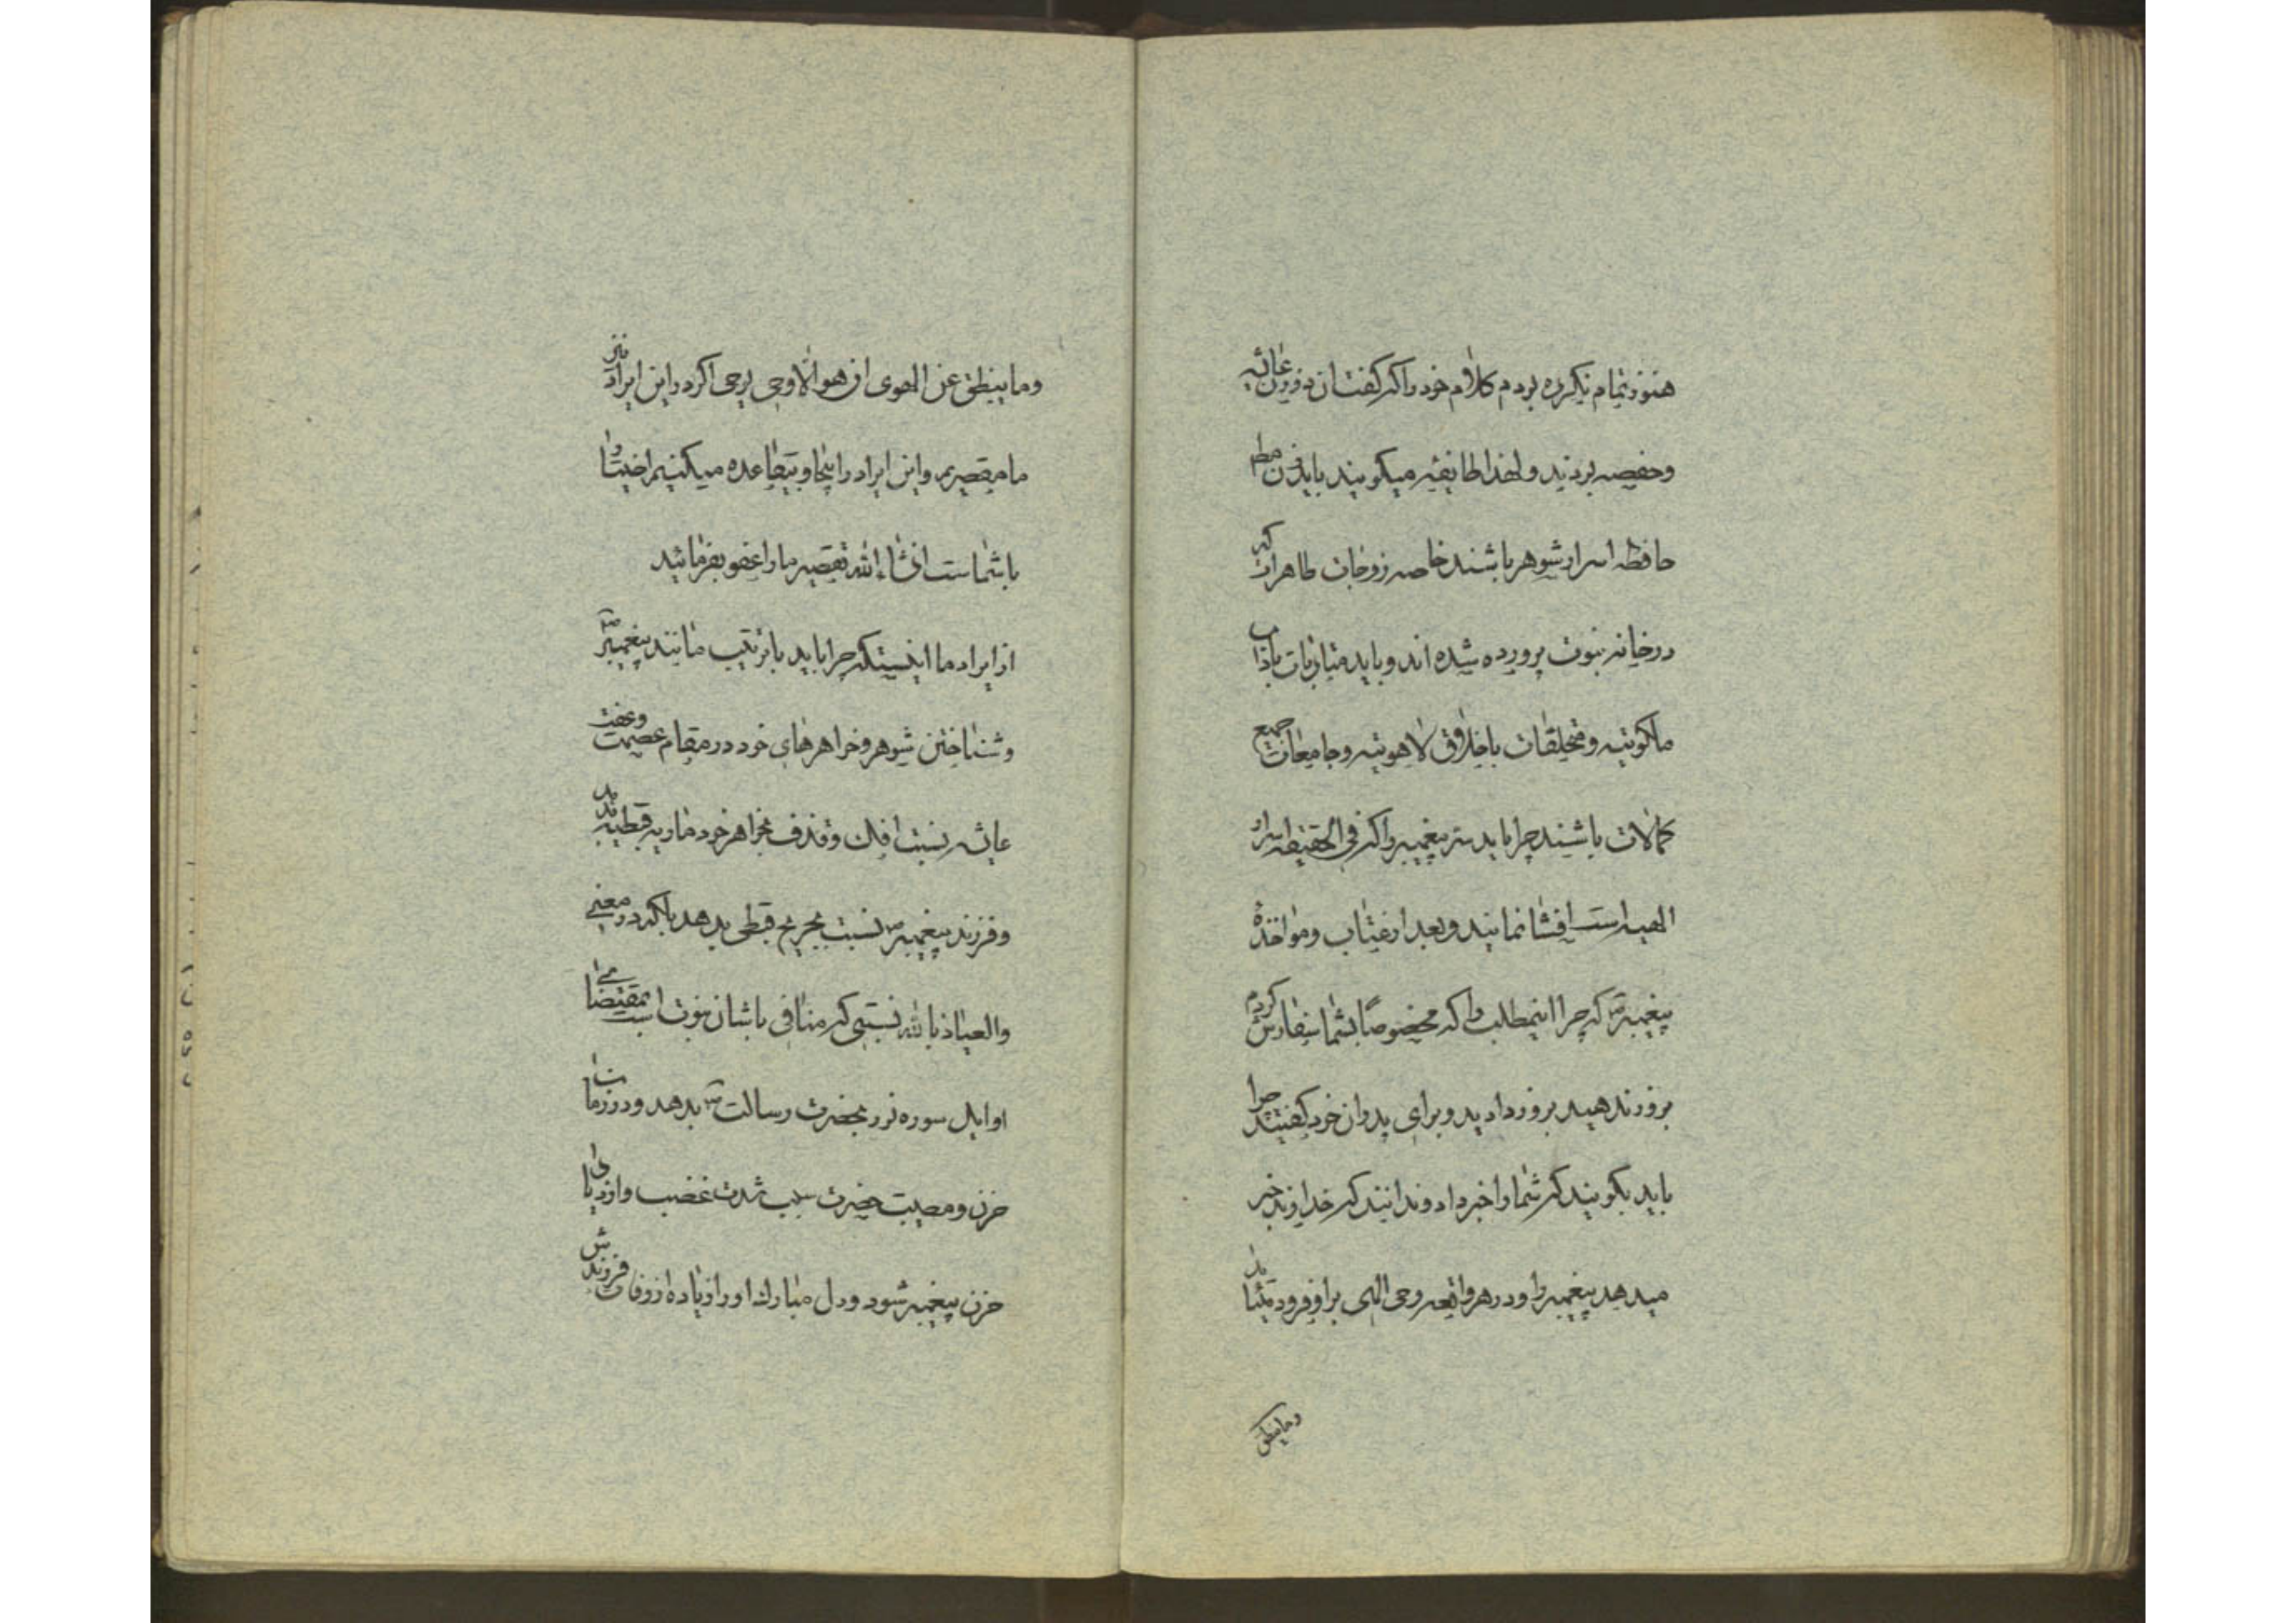 هنوز تمام نکرده بودم کلام خود را که گفتند آن دو زن عائشه
وحفصه بودند و لهذا طایفه میکویند باید زن
حافظه اسرار شوهر باشند خاصه زوجات طاهرات که
در خانه نبوت پرورده شده اند و باید متادبات باداب
ملکوتیه و متخلقات باخلاق لاهوتیه و جامعات جمیع
کمالات باشند چرا باید سر پیغمبر را که فی الحقیقه اسرار
الهیه است افشا نمایند و بعد از عتاب و مواخذهٔ
پیغمبر ص که چرا اینمطلب را که مخصوصاً بشما سفارش کردم
بروز ندهید بروز دادید و برای پدران خود گفتید چرا
باید بکویند که شما را خبر داد و ندانند که خداوند خبر
میدهد پیغمبر را و در هر واقعه وحی الهی بر او فرود میاید
وماینطق
وما ینطق عن الهوی ان هو الا وحی یوحی اکر در این ایراد نیز
ما مقصریم و این ایراد را بیجا و بیقاعده میکنیم اختیار
با شماست انشاءالله تقصیر ما را عفو بفرمائید
از ایراد ما اینستکه چرا باید با تربیت مانند پیغمبر ص
و شناختن شوهر و خواهرهای خود در مقام عصمت وعفت
عایشه نسبت افک و قذف بخواهر خود ماریه قبطیه بدهد
و فرزند پیغمبر ص نسبت بجریح قبطی بدهد بلکه در معنی
والعیاذ بالله نسبتی که منافی با شان نبوت است بمقتضای
اوایل سوره نور بحضرت رسالت ص بدهد و در زمان
حزن و مصیبت حضرت سبب شدت غضب و ازدیاد
حزن پیغمبر شود و دل مبارک او را زیاده از وفات فرزندش